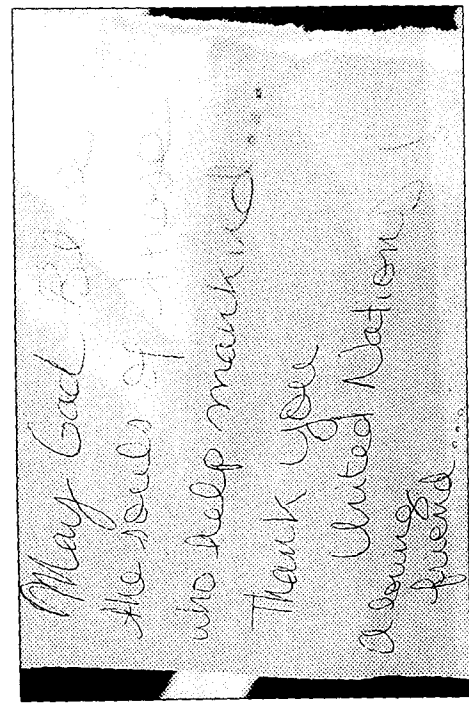 May God Bless
the souls of those
who help mankind....
Thank you
United Nations
a loving
friend...